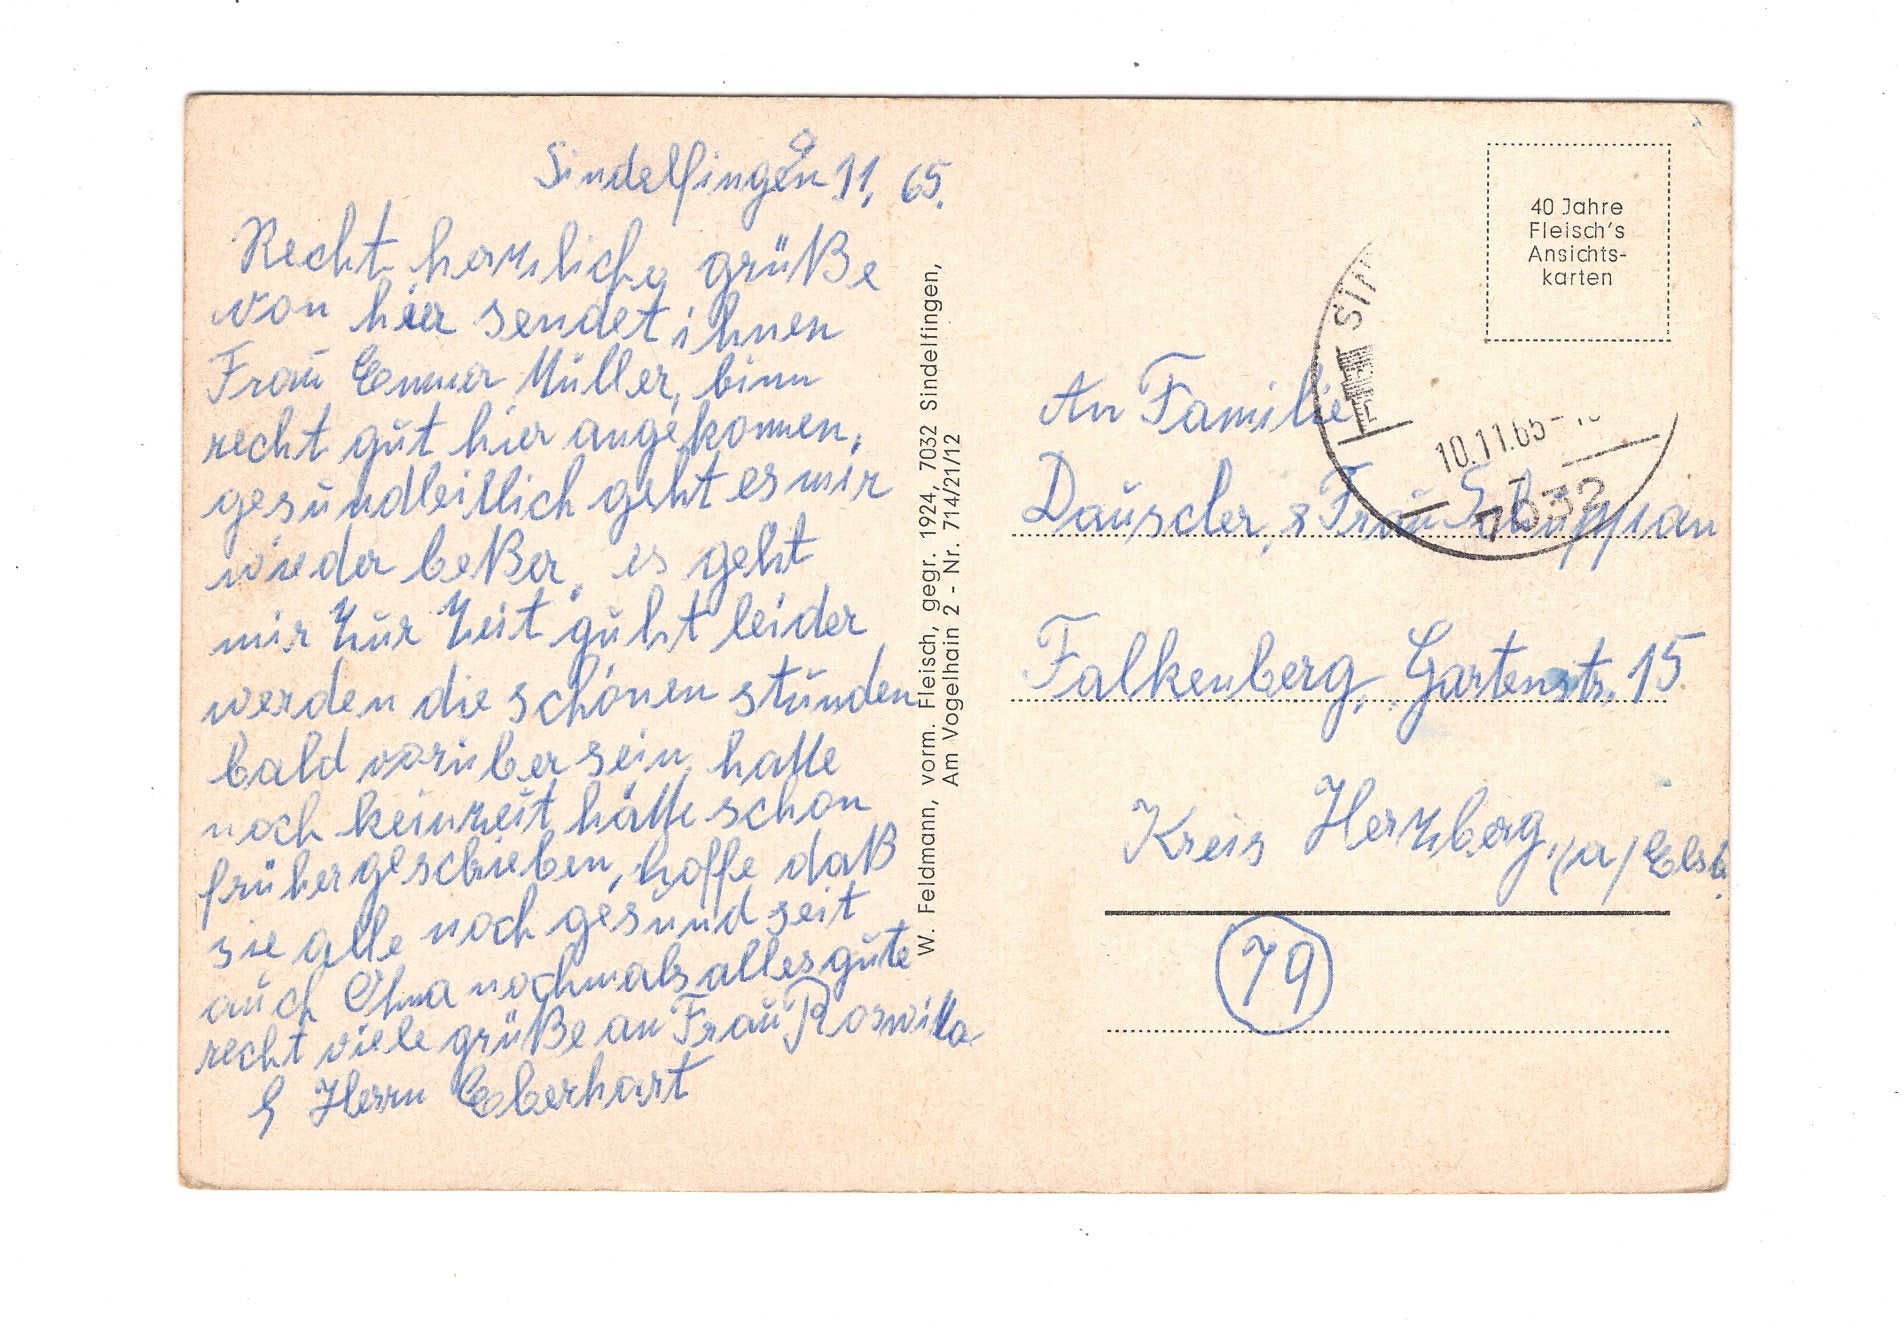 Sindelfingen 9. 11. 65.
Recht herzliche grüße
von hier sendet ihnen
Frau Emma Müller, binn
recht gut hier angekommen,
gesundheitlich geht es mir
wieder beßer, es geht
mir zur Zeit guht leider
werden die schönen stunden
bald vorüber sein, hatte
noch keinzeit hätte schon
früher geschrieben, hoffe daß
sie alle noch gesund seit
auch Ohma nochmals alles gute
recht viele grüße an Frau Roswitta
& Herrn Eberhart
W. Feldmann, vorm. Fleisch, gegr. 1924, 7032 Sindelfingen,
Am Vogelhain 2 - Nr. 714/21/12
40 Jahre
Fleisch's
Ansichts-
karten
SIN
10.11.65
7032
An Familie
Dauscler, & Frau Schuppan
Falkenberg, Gartenstr. 15
Kreis Herzberg, /a/ Elst.
79